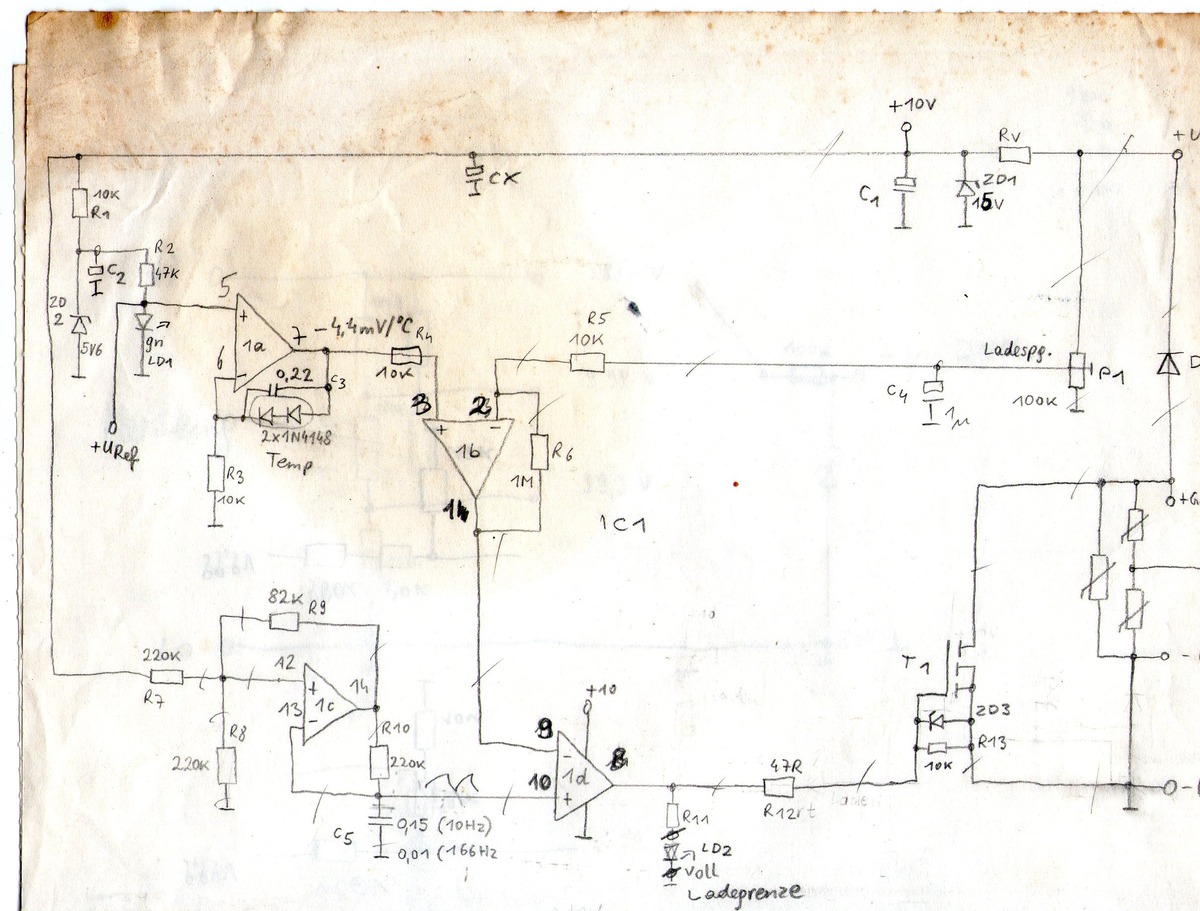 +10V
RV
+U
CX
C1
ZD1
15V
10K
R1
C2
R2
47K
ZD
2
5V6
gn
LD1
+URef
5
6
7
+
-
1a
-4,4mV/°C
R4
10K
0,22
C3
2x1N4148
Temp
R3
10K
3
2
+
-
1b
R5
10K
R6
1M
IC1
Ladespg.
P1
100K
C4
1µ
D
+G
82K
R9
220K
R7
12
13
14
+
-
1c
R8
220K
R10
220K
C5
0,15 (10Hz)
0,01 (166Hz
+10
9
10
8
-
+
1d
47R
R12
R11
LD2
voll
Ladegrenze
T1
ZD3
R13
10K
-